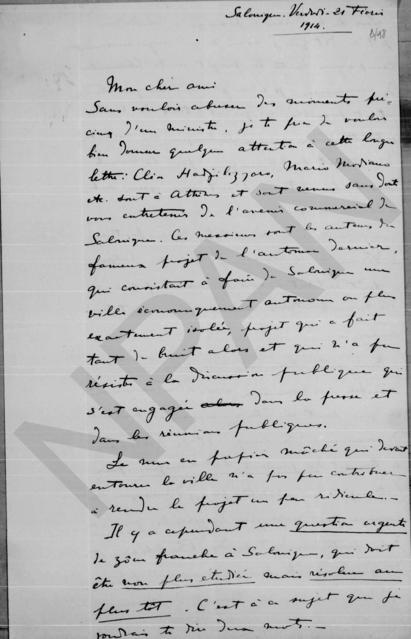 Salonique. Vendredi - 21 Février
1914.
Mon cher ami
Sans vouloir abuser des moments pré-
cieux d'un ministre, je te prie de vouloir
bien donner quelque attention à cette longue
lettre: Clia Hadjilazzaro, Mario Modiano
etc. sont à Athènes et sont venus sans doute
vous entretenir de l'avenir commercial de
Salonique. Ces messieurs sont les auteurs du
fameux projet de l'automne dernier,
qui consistait à faire de Salonique une
ville économiquement autonome ou plus
exactement isolée, projet qui a fait
tant de bruit alors et qui n'a pu
résister à la discussion publique qui
s'est engagée dans la presse et
dans les réunions publiques.
Le mur en papier mâché qui devait
entourer la ville n'a pas peu contribuer
à rendre le projet un peu ridicule.-
Il y a cependant une question urgente
de zône franche à Salonique, qui doit
être non plus etudiée mais résolue au
plus tôt. C'est à ce sujet que je
voudrais te dire deux mots.-
NPAN